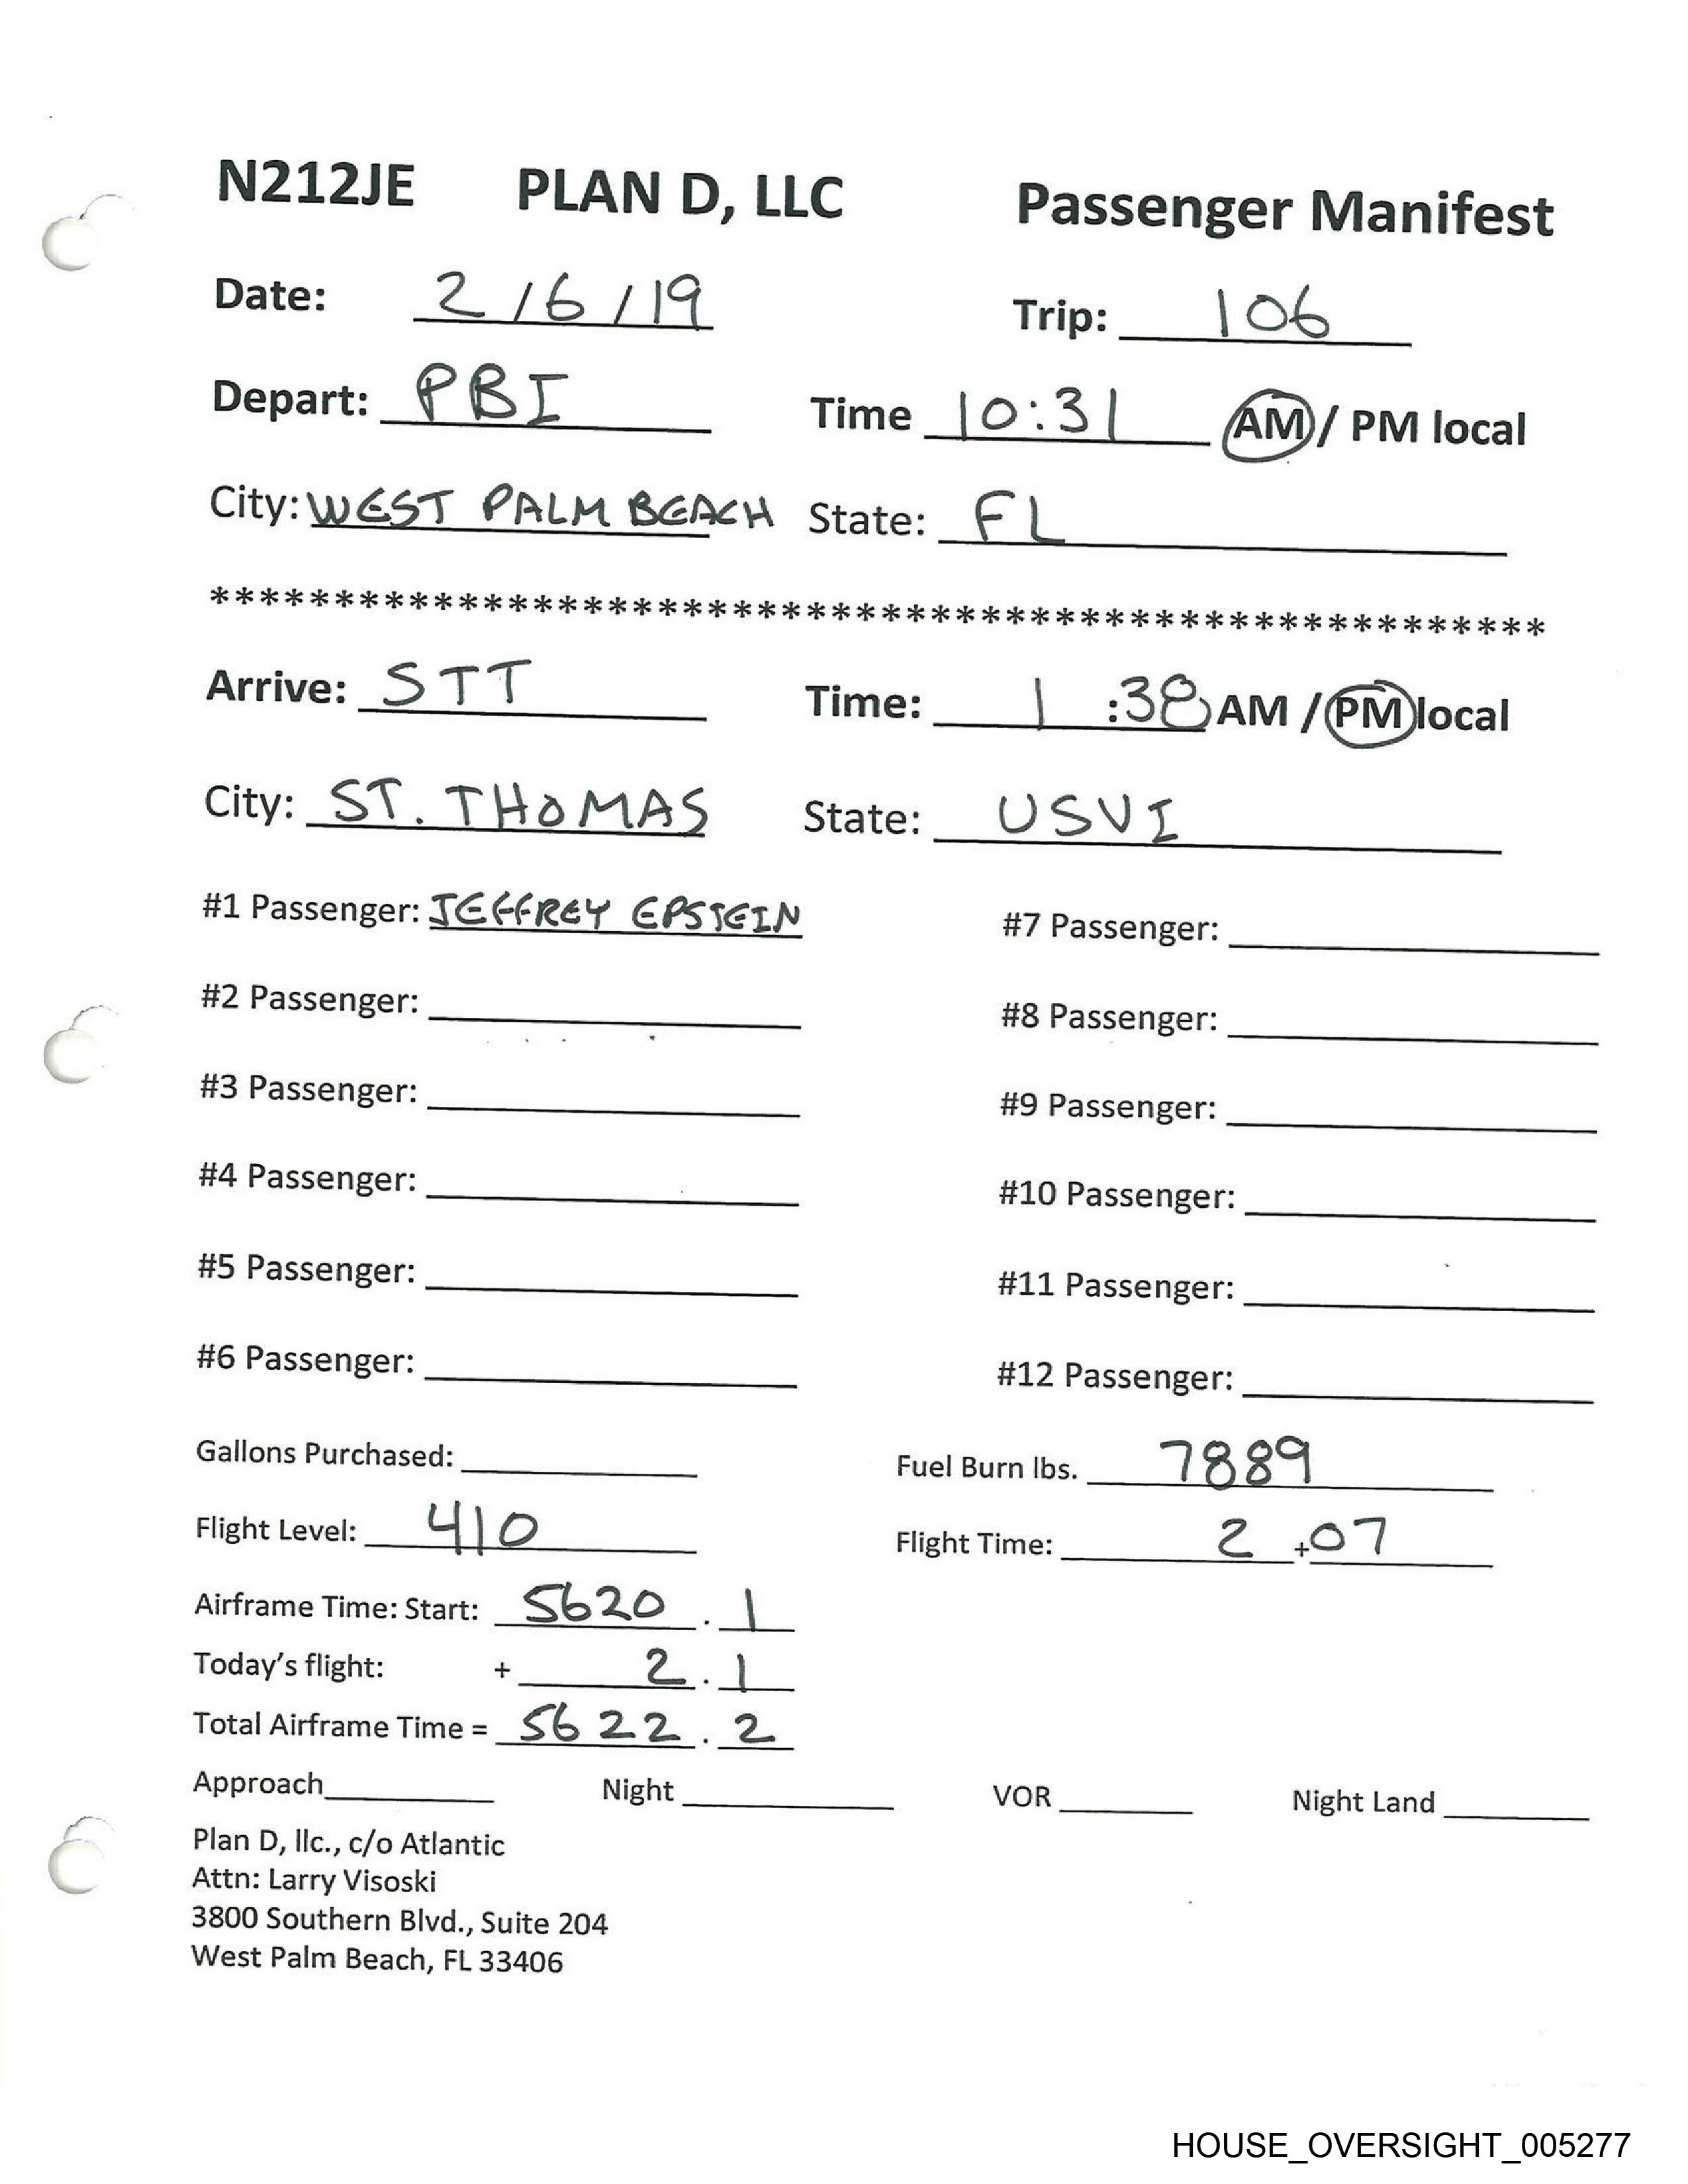 N212JE PLAN D, LLC Passenger Manifest
Date: 2/6/19 Trip: 106
Depart: PBI Time 10:31 AM / PM local
City: WEST PALM BEACH State: FL
******************************************************
Arrive: STT Time: 1:38 AM / PM local
City: ST. THOMAS State: USVI
#1 Passenger: JEFFREY EPSTEIN #7 Passenger:
#2 Passenger: #8 Passenger:
#3 Passenger: #9 Passenger:
#4 Passenger: #10 Passenger:
#5 Passenger: #11 Passenger:
#6 Passenger: #12 Passenger:
Gallons Purchased: Fuel Burn lbs. 7889
Flight Level: 410 Flight Time: 2 +07
Airframe Time: Start: 5620.1
Today's flight: + 2.1
Total Airframe Time = 5622.2
Approach Night VOR Night Land
Plan D, llc., c/o Atlantic
Attn: Larry Visoski
3800 Southern Blvd., Suite 204
West Palm Beach, FL 33406
HOUSE_OVERSIGHT_005277